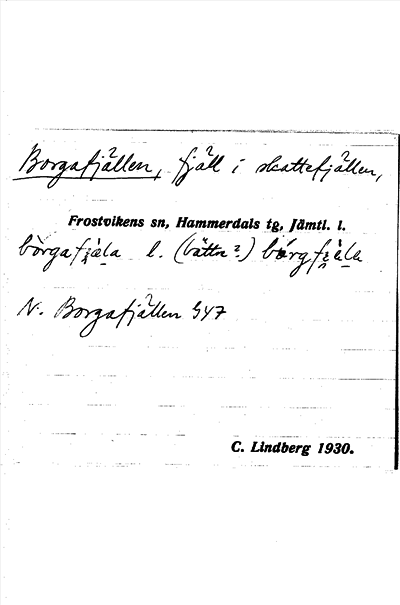 Borgafjällen, fjäll i skattefjällen,
Frostvikens sn, Hammerdals tg, Jämtl. l.
bòrgafjä̀la l. (bättre?) bórgfjä̀la
N. Borgafjällen 947
C. Lindberg 1930.